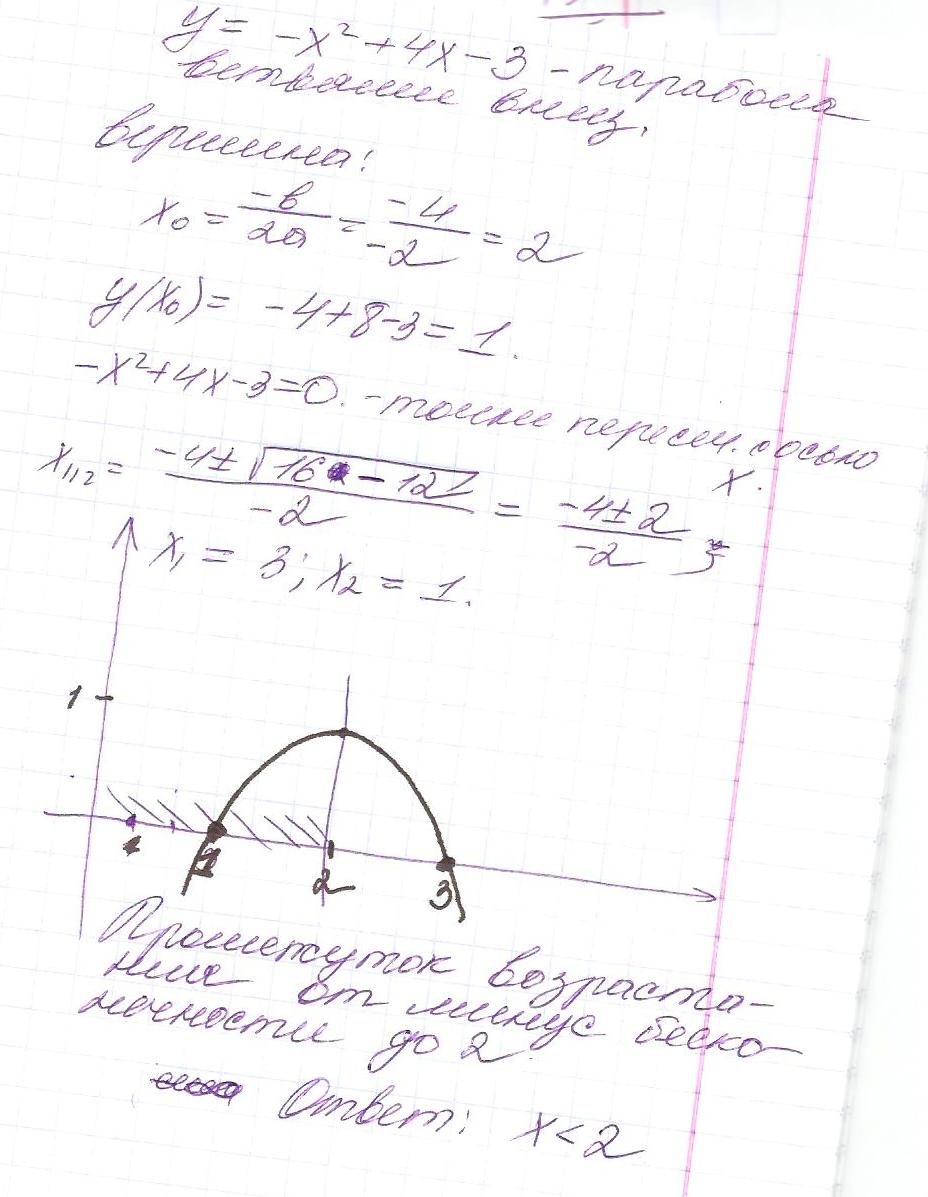 y = -x² + 4x - 3 - парабола
ветвями вниз.
вершина:
x₀ = -в/2а = -4/-2 = 2
y(x₀) = -4+8-3 = 1.
-x²+4x-3=0. - точки пересеч. с осью
x.
x₁,₂ = (-4±√(16 - 12))/-2 = (-4±2)/-2 ;
x₁ = 3; x₂ = 1.
1
1 2 3
Промежуток возраста-
ния от минус беско-
нечности до 2
Ответ: x<2